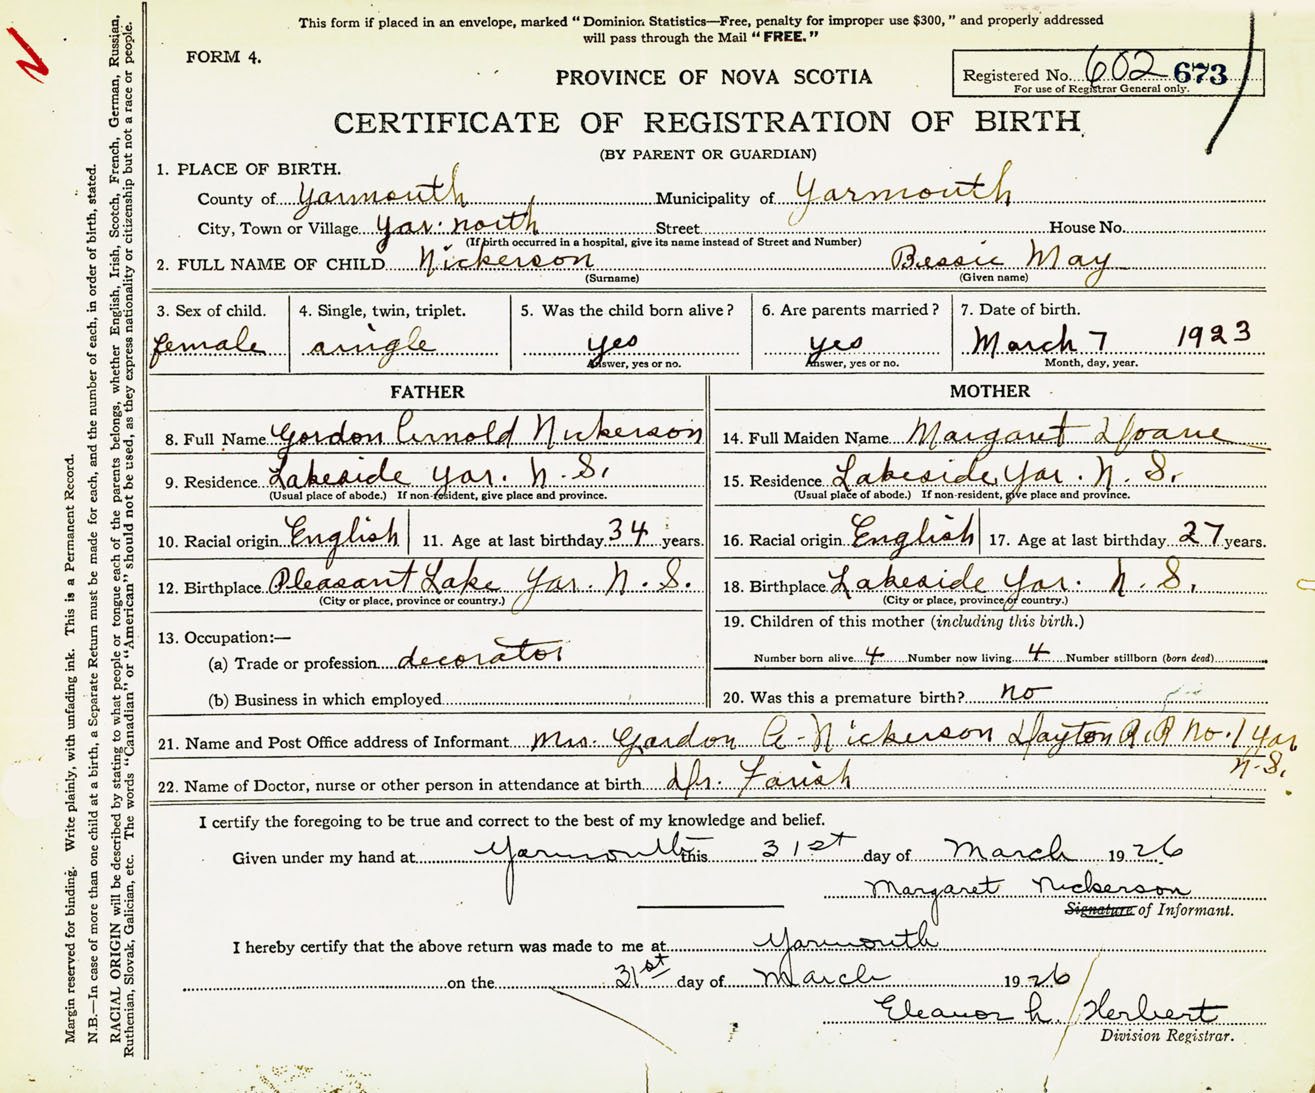 This form if placed in an envelope, marked "Dominion Statistics—Free, penalty for improper use $300," and properly addressed
will pass through the Mail "FREE."
FORM 4.
PROVINCE OF NOVA SCOTIA
Registered No. 602 673
For use of Registrar General only.
CERTIFICATE OF REGISTRATION OF BIRTH
(BY PARENT OR GUARDIAN)
1. PLACE OF BIRTH.
County of Yarmouth Municipality of Yarmouth
City, Town or Village Yar. north Street House No.
(If birth occurred in a hospital, give its name instead of Street and Number)
2. FULL NAME OF CHILD Nickerson Bessie May
(Surname) (Given name)
3. Sex of child. 4. Single, twin, triplet. 5. Was the child born alive? 6. Are parents married? 7. Date of birth.
female single yes yes March 7 1923
Answer, yes or no. Answer, yes or no. Month, day, year.
FATHER MOTHER
8. Full Name Gordon Arnold Nickerson 14. Full Maiden Name Margaret Doane
9. Residence Lakeside Yar. N.S. 15. Residence Lakeside, Yar. N.S.
(Usual place of abode.) If non-resident, give place and province. (Usual place of abode.) If non-resident, give place and province.
10. Racial origin English 11. Age at last birthday 34 years. 16. Racial origin English 17. Age at last birthday 27 years.
12. Birthplace Pleasant Lake Yar. N.S. 18. Birthplace Lakeside Yar. N.S.
(City or place, province or country.) (City or place, province or country.)
13. Occupation:— 19. Children of this mother (including this birth.)
(a) Trade or profession decorator Number born alive 4 Number now living 4 Number stillborn (born dead)
(b) Business in which employed 20. Was this a premature birth? no
21. Name and Post Office address of Informant Mrs. Gordon A. Nickerson Dayton R.R No. 1 Yar
N.S.
22. Name of Doctor, nurse or other person in attendance at birth Dr. Farish
I certify the foregoing to be true and correct to the best of my knowledge and belief.
Given under my hand at Yarmouth this 31st day of March 1926
Margaret Nickerson
Signature of Informant.
I hereby certify that the above return was made to me at Yarmouth
on the 31st day of March 1926
Eleanor L. Herbert
Division Registrar.
Margin reserved for binding. Write plainly, with unfading ink. This is a Permanent Record.
N.B.—In case of more than one child at a birth, a Separate Return must be made for each, and the number of each, in order of birth, stated.
RACIAL ORIGIN will be described by stating to what people or tongue each of the parents belongs, whether English, Irish, Scotch, French, German, Russian,
Ruthenian, Slovak, Galician, etc. The words "Canadian" or "American" should not be used, as they express nationality or citizenship but not a race or people.